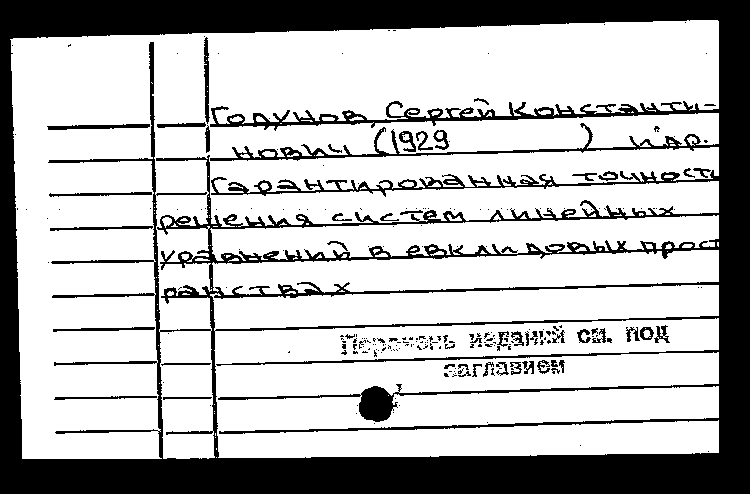 Годунов, Сергей Константи-
нович (1929 ) и др.
Гарантированная точность
решения систем линейных
уравнений в евклидовых прост
ранствах
Перечень изданий см. под
заглавием